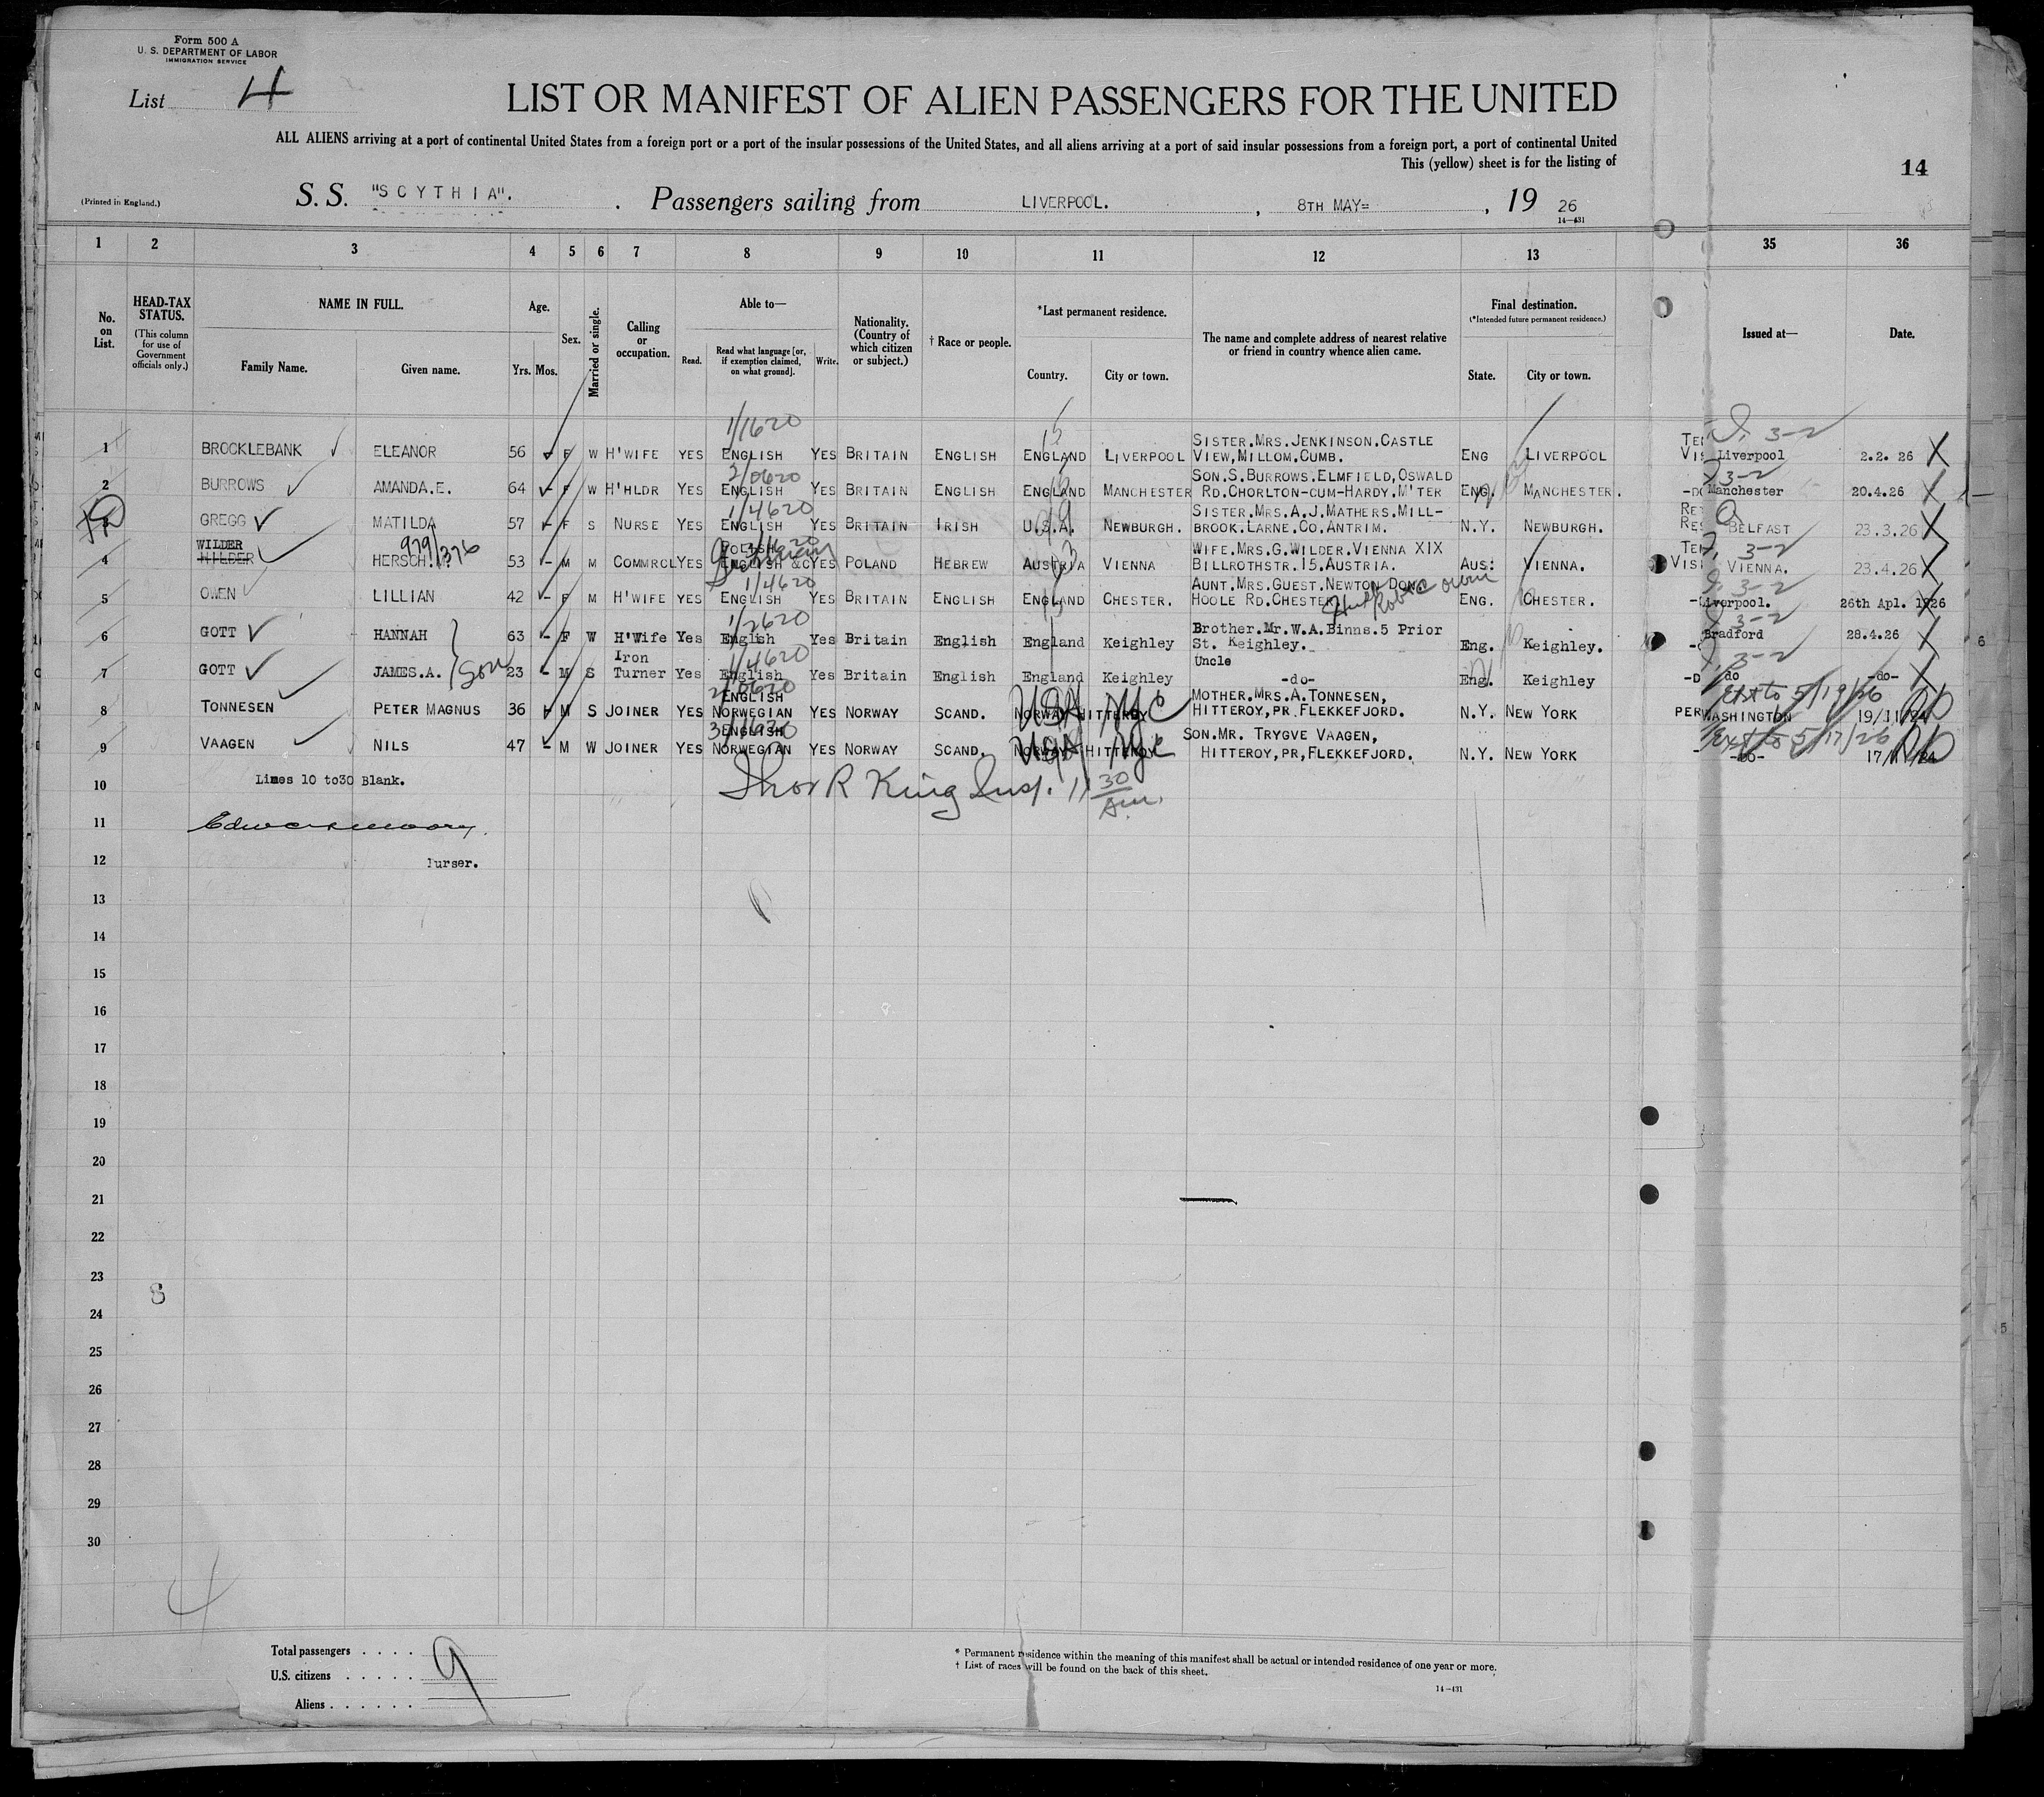 Form 500 A
U. S. DEPARTMENT OF LABOR
IMMIGRATION SERVICE
List 4
LIST OR MANIFEST OF ALIEN PASSENGERS FOR THE UNITED
ALL ALIENS arriving at a port of continental United States from a foreign port or a port of the insular possessions of the United States, and all aliens arriving at a port of said insular possessions from a foreign port, a port of continental United
This (yellow) sheet is for the listing of
14
(Printed in England.)
S. S. "SCYTHIA". Passengers sailing from LIVERPOOL. , 8TH MAY= , 19 26
14—431
1 2 3 4 5 6 7 8 9 10 11 12 13 35 36
No. on List.
HEAD-TAX STATUS.
(This column for use of Government officials only.)
NAME IN FULL.
Family Name. Given name.
Age.
Yrs. Mos.
Sex.
Married or single.
Calling or occupation.
Able to—
Read. Read what language [or, if exemption claimed, on what ground]. Write.
Nationality. (Country of which citizen or subject.)
† Race or people.
*Last permanent residence.
Country. City or town.
The name and complete address of nearest relative or friend in country whence alien came.
Final destination.
(*Intended future permanent residence.)
State. City or town.
Issued at—
Date.
1/1620
1 BROCKLEBANK ELEANOR 56 F W H'WIFE YES ENGLISH YES BRITAIN ENGLISH ENGLAND LIVERPOOL SISTER.MRS.JENKINSON.CASTLE VIEW,MILLOM.CUMB. ENG LIVERPOOL 3-2 Liverpool 2.2. 26
2/0620
2 BURROWS AMANDA.E. 64 F W H'HLDR YES ENGLISH YES BRITAIN ENGLISH ENGLAND MANCHESTER SON.S.BURROWS.ELMFIELD,OSWALD RD.CHORLTON-CUM-HARDY.M'TER ENG. MANCHESTER. 3-2 Manchester 20.4.26
1/4620
3 GREGG MATILDA 57 F S NURSE YES ENGLISH YES BRITAIN IRISH U.S.A. NEWBURGH. SISTER.MRS.A.J.MATHERS.MILL-BROOK.LARNE.CO.ANTRIM. N.Y. NEWBURGH. BELFAST 23.3.26
979/376
4 WILDER WILDER HERSCH. 53 M M COMMRCL YES POLISH ENGLISH &C YES POLAND HEBREW AUSTRIA VIENNA WIFE.MRS.G.WILDER.VIENNA XIX BILLROTHSTR.15.AUSTRIA. AUS: VIENNA. 3-2 VIENNA. 23.4.26
1/4620
5 OWEN LILLIAN 42 F M H'WIFE YES ENGLISH YES BRITAIN ENGLISH ENGLAND CHESTER. AUNT.MRS.GUEST.NEWTON HOOLE RD.CHESTER ENG. CHESTER. 3-2 Liverpool. 26th Apl. 1926
1/2620
6 GOTT HANNAH 63 F W H'Wife Yes English Yes Britain English England Keighley Brother.Mr.W.A.Binns.5 Prior St. Keighley. Eng. Keighley. 3-2 Bradford 28.4.26
1/4620
7 GOTT JAMES.A. Son 23 M S Iron Turner Yes English Yes Britain English England Keighley Uncle -do- Eng. Keighley 3-2 do -do-
2/0620
8 TONNESEN PETER MAGNUS 36 M S JOINER YES ENGLISH NORWEGIAN YES NORWAY SCAND. NORWAY HITTEROY USA NYC MOTHER.MRS.A.TONNESEN, HITTEROY,PR.FLEKKEFJORD. N.Y. NEW YORK PER WASHINGTON Ext to 5/19/26 19/11/24
3/1620
9 VAAGEN NILS 47 M W JOINER YES ENGLISH NORWEGIAN YES NORWAY SCAND. NORWAY HITTEROY USA NYC SON.MR. TRYGVE VAAGEN, HITTEROY,PR,FLEKKEFJORD. N.Y. NEW YORK -DO- Ext to 5/17/26 17/11/24
10 Lines 10 to30 Blank.
Thos R King Insp. 11 30 Am.
11
12 Purser.
13
14
15
16
17
18
19
20
21
22
23
24
25
26
27
28
29
30
4
Total passengers . . . .
U.S. citizens . . . . .
Aliens . . . . . .
9
* Permanent residence within the meaning of this manifest shall be actual or intended residence of one year or more.
† List of races will be found on the back of this sheet.
14—431